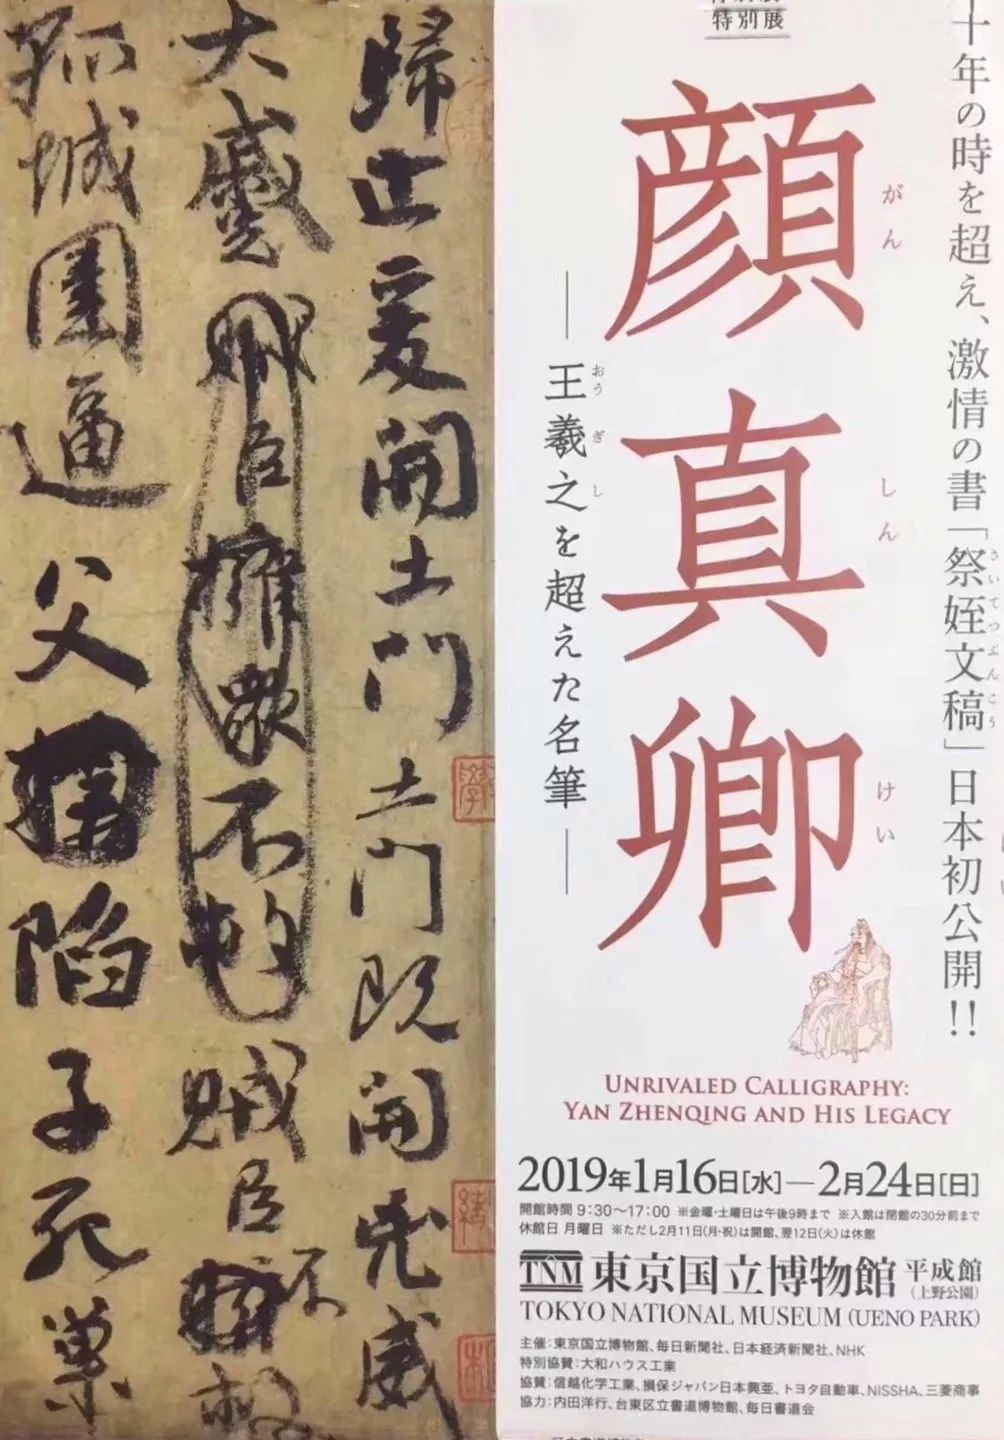 特別展
十年の時を超え、激情の書「祭姪文稿」日本初公開!!
さいてつぶんこう
顔真卿
がんしんけい
王羲之を超えた名筆
おうぎし
歸止爰開土門土門既開凶威
大蹙臣擁衆不救賊臣不救
孤城圍逼父陷子死巢
UNRIVALED CALLIGRAPHY:
YAN ZHENQING AND HIS LEGACY
2019年1月16日[水]—2月24日[日]
開館時間 9:30〜17:00 ※金曜・土曜日は午後9時まで ※入館は閉館の30分前まで
休館日 月曜日 ※ただし2月11日(月・祝)は開館、翌12日(火)は休館
TNM 東京国立博物館 平成館
(上野公園)
TOKYO NATIONAL MUSEUM (UENO PARK)
主催:東京国立博物館、毎日新聞社、日本経済新聞社、NHK
特別協賛:大和ハウス工業
協賛:信越化学工業、損保ジャパン日本興亜、トヨタ自動車、NISSHA、三菱商事
協力:内田洋行、台東区立書道博物館、毎日書道会